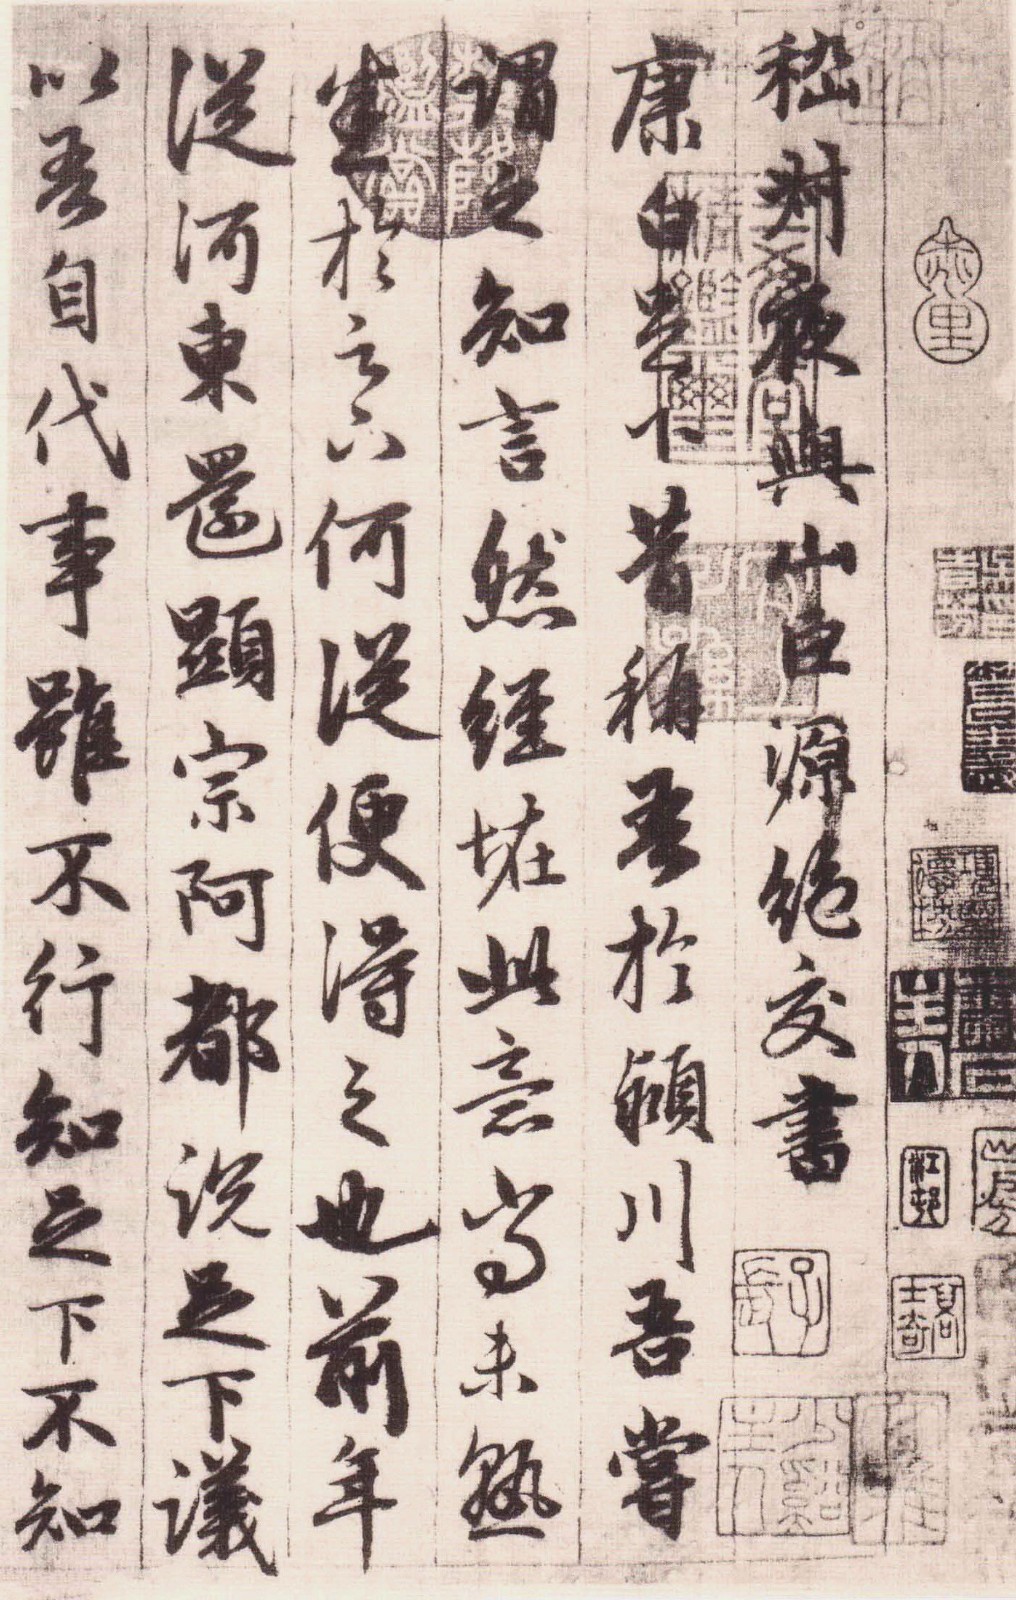 嵇叔夜與山巨源絕交書
康白足下昔稱吾於潁川吾嘗
謂之知言然經怪此意尚未熟
悉於足下何從便得之也前年
從河東還顯宗阿都說足下議
以吾自代事雖不行知足下不知
江邨
高士奇